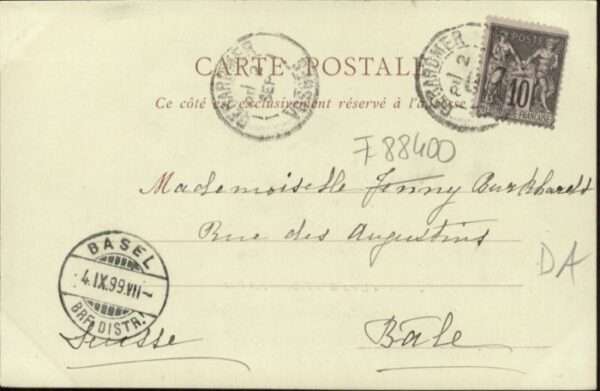 CARTE POSTALE
Ce côté est exclusivement réservé à l'adresse
GERARDMER
2
SEPT
VOSGES
GERARDMER
2
POSTE
10
FRANÇAISE
F 88400
Mademoiselle Jenny Burkhardt
Rue des Augustins
DA
BASEL
4.IX.99.VII–
BRF. DISTR.
Suisse
Bâle